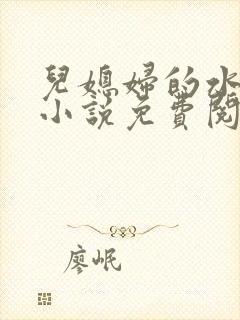 兒媳婦的水
小說免費閱
廖岷